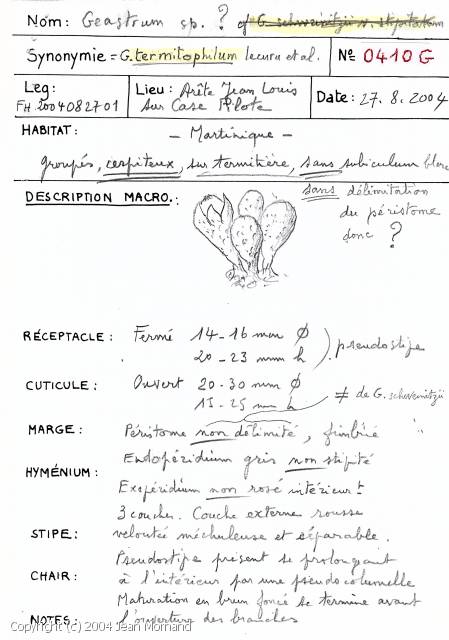 Nom: Geastrum sp. ? cf G. schweinitzii v. stipitatum
Synonymie = G. termitophilum lecuru et al. Nº 0410 G
Leg: FH 2004082701
Lieu: Arête Jean Louis
sur Case Pilote
Date: 27.8.2004
HABITAT: - Martinique -
groupés, cespiteux, sur termitière, sans subiculum blanc
DESCRIPTION MACRO.:
sans délimitation
du péristome
donc ?
RÉCEPTACLE: Fermé 14-16 mm Ø
20-23 mm h
pseudostipe
CUTICULE: Ouvert 20-30 mm Ø
15-25 mm h
≠ de G. schweinitzii
MARGE: Péristome non délimité, fimbrié
HYMÉNIUM: Endopéridium gris non stipité
Exopéridium non rosé intérieurt
3 couches. Couche externe rousse
STIPE: veloutée méchuleuse et séparable.
Pseudostipe présent se prolongeant
CHAIR: à l'intérieur par une pseudocolumelle
Maturation en brun foncé se termine avant
NOTES: l'ouverture des branches
Copyright (c) 2004 Jean Mornand